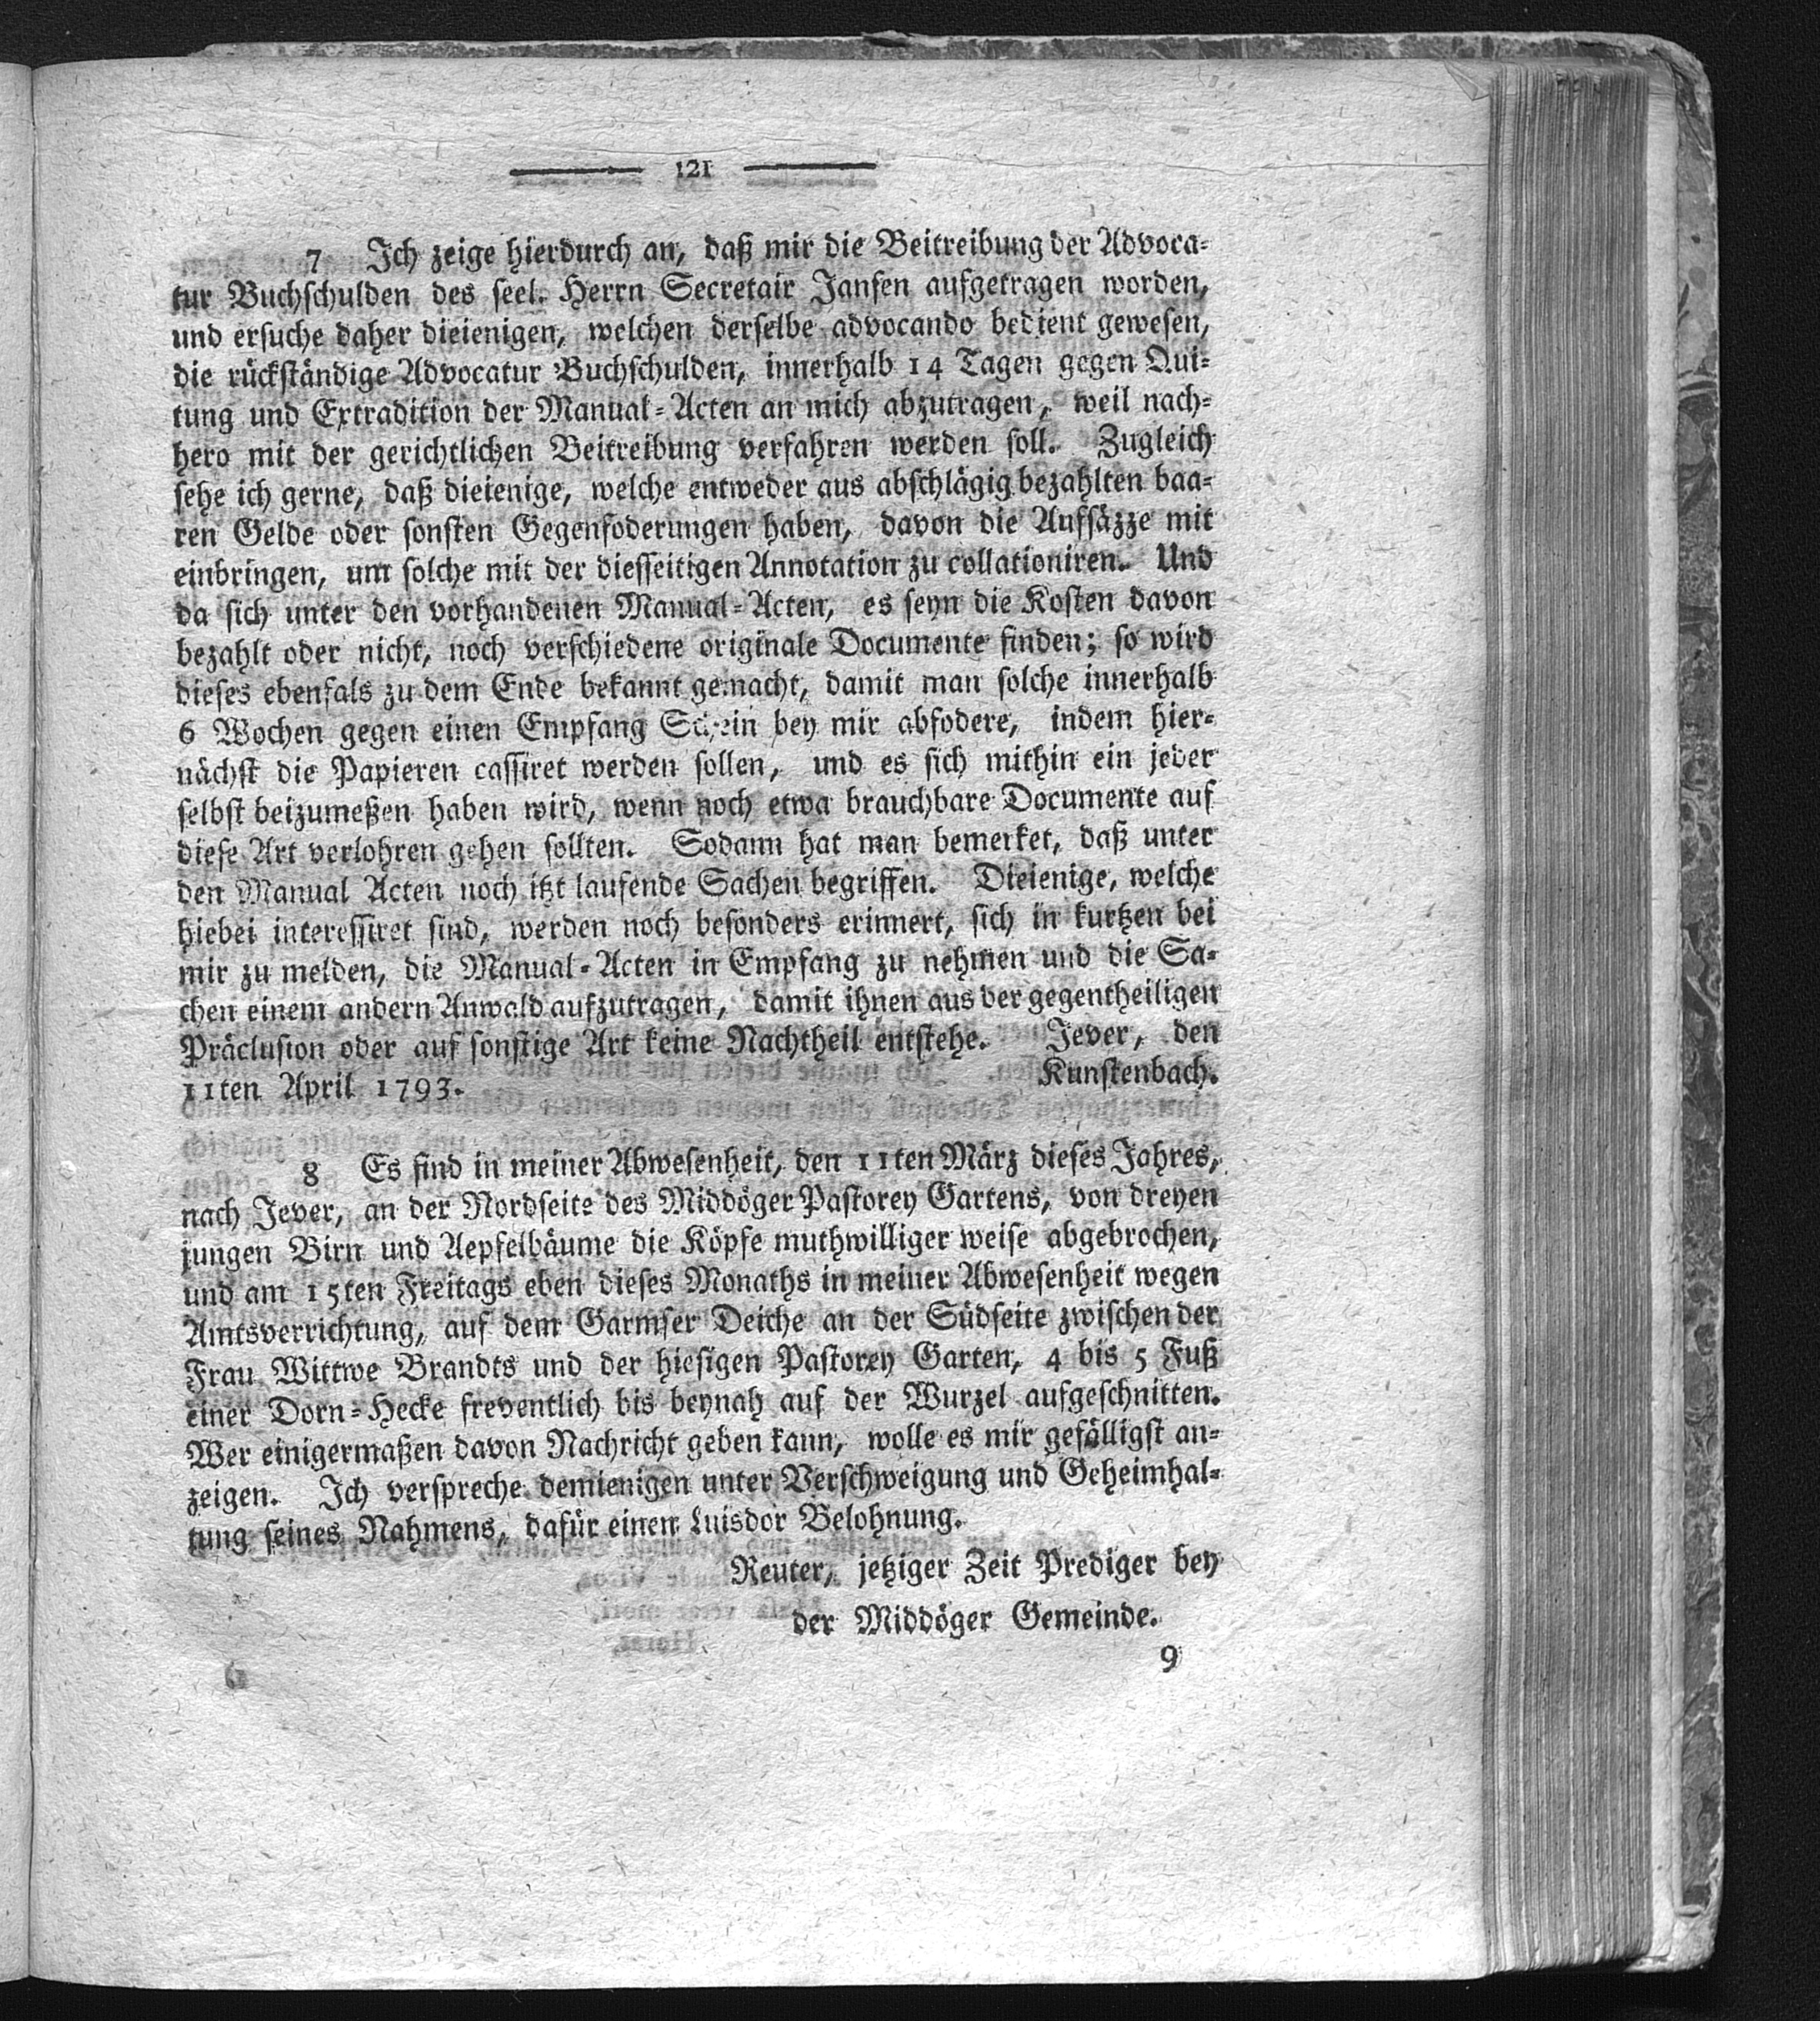 121
7 Ich zeige hierdurch an, daß mir die Beitreibung der Advoca-
tur Buchschulden des seel. Herrn Secretair Jansen aufgetragen worden,
und ersuche daher dieienigen, welchen derselbe advocando bedient gewesen,
die rückständige Advocatur Buchschulden, innerhalb 14 Tagen gegen Qui-
tung und Extradition der Manual-Acten an mich abzutragen, weil nach-
hero mit der gerichtlichen Beitreibung verfahren werden soll. Zugleich
sehe ich gerne, daß dieienige, welche entweder aus abschlägig bezahlten baa-
ren Gelde oder sonsten Gegenfoderungen haben, davon die Aufsäzze mit
einbringen, um solche mit der diesseitigen Annotation zu collationiren. Und
da sich unter den vorhandenen Manual-Acten, es seyn die Kosten davon
bezahlt oder nicht, noch verschiedene originale Documente finden; so wird
dieses ebenfals zu dem Ende bekannt gemacht, damit man solche innerhalb
6 Wochen gegen einen Empfang Schein bey mir abfodere, indem hier-
nächst die Papieren cassiret werden sollen, und es sich mithin ein jeder
selbst beizumeßen haben wird, wenn noch etwa brauchbare Documente auf
diese Art verlohren gehen sollten. Sodann hat man bemerket, daß unter
den Manual Acten noch itzt laufende Sachen begriffen. Dieienige, welche
hiebei interessiret sind, werden noch besonders erinnert, sich in kurtzen bei
mir zu melden, die Manual-Acten in Empfang zu nehmen und die Sa-
chen einem andern Anwald aufzutragen, damit ihnen aus der gegentheiligen
Präclusion oder auf sonstige Art keine Nachtheil entstehe. Jever, den
11ten April 1793. Kunstenbach.
8 Es sind in meiner Abwesenheit, den 11ten März dieses Jahres,
nach Jever, an der Nordseite des Middöger Pastorey Gartens, von dreyen
jungen Birn und Aepfelbäume die Köpfe muthwilliger weise abgebrochen,
und am 15ten Freitags eben dieses Monaths in meiner Abwesenheit wegen
Amtsverrichtung, auf dem Garmser Deiche an der Südseite zwischen der
Frau Wittwe Brandts und der hiesigen Pastorey Garten, 4 bis 5 Fuß
einer Dorn-Hecke freventlich bis beynah auf der Wurzel aufgeschnitten.
Wer einigermaßen davon Nachricht geben kann, wolle es mir gefälligst an-
zeigen. Ich verspreche demienigen unter Verschweigung und Geheimhal-
tung seines Nahmens, dafür einen Luisdor Belohnung.
Reuter, jetziger Zeit Prediger bey
der Middöger Gemeinde.
9